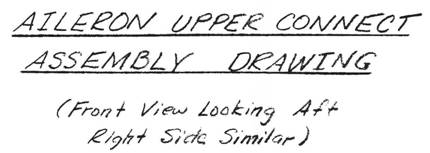 AILERON UPPER CONNECT
ASSEMBLY DRAWING
(Front View Looking Aft
Right Side Similar)